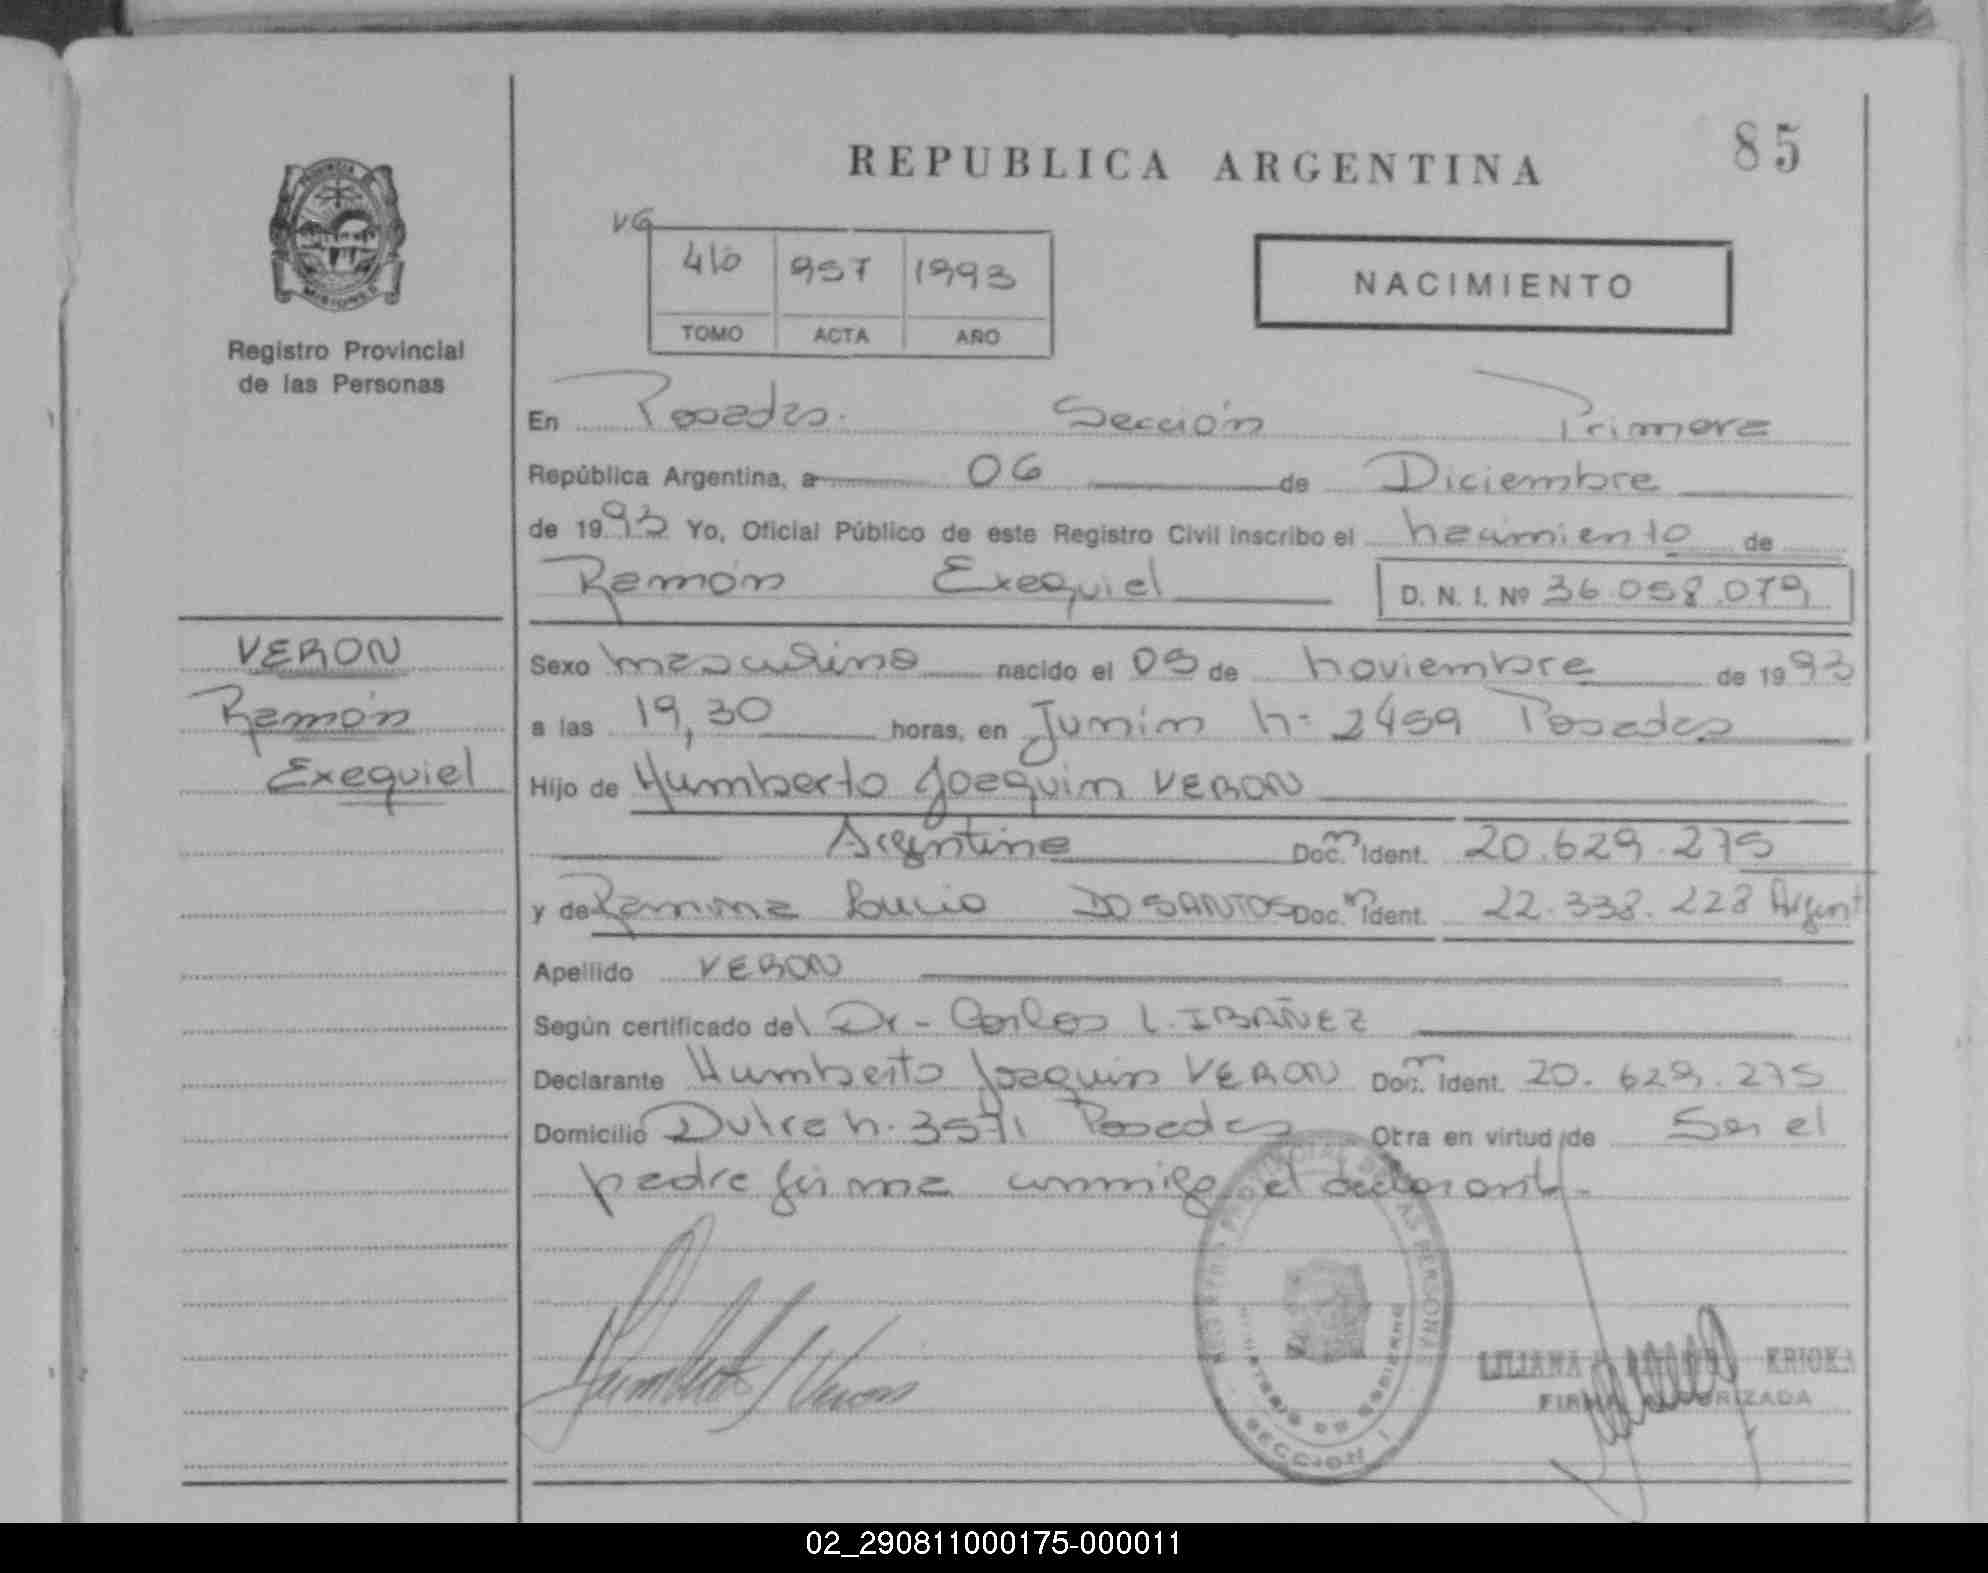 REPUBLICA ARGENTINA
85
VG
410 957 1993
TOMO ACTA AÑO
NACIMIENTO
PROVINCIA
MISIONES
Registro Provincial
de las Personas
En Posadas. Sección Primera
República Argentina, a 06 de Diciembre
de 1993 Yo, Oficial Público de este Registro Civil inscribo el nacimiento de
Ramón Exequiel D. N. I. Nº 36.058.079
VERON
Ramón
Exequiel
Sexo masculino nacido el 05 de noviembre de 1993
a las 19,30 horas, en Junin n- 2459 Posadas
Hijo de Humberto Joaquin VERON
Argentino Doc. Ident. 20.629.275
y de Ramona Lucia DO SANTOS Doc. Ident. 22.338.228 Argent
Apellido VERON
Según certificado del Dr- Carlos L. IBAÑEZ
Declarante Humberto Joaquin VERON Doc. Ident. 20.629.275
Domicilio Dutra n. 3571 Posadas Otra en virtud de Ser el
padre firma conmigo el declarante-
REGISTRO PROVINCIAL DE LAS PERSONAS
MINISTERIO DE GOBIERNO
SECCION 1
Humberto J Veron
LILIANA ERIOKA
FIRMA AUTORIZADA
02_290811000175-000011